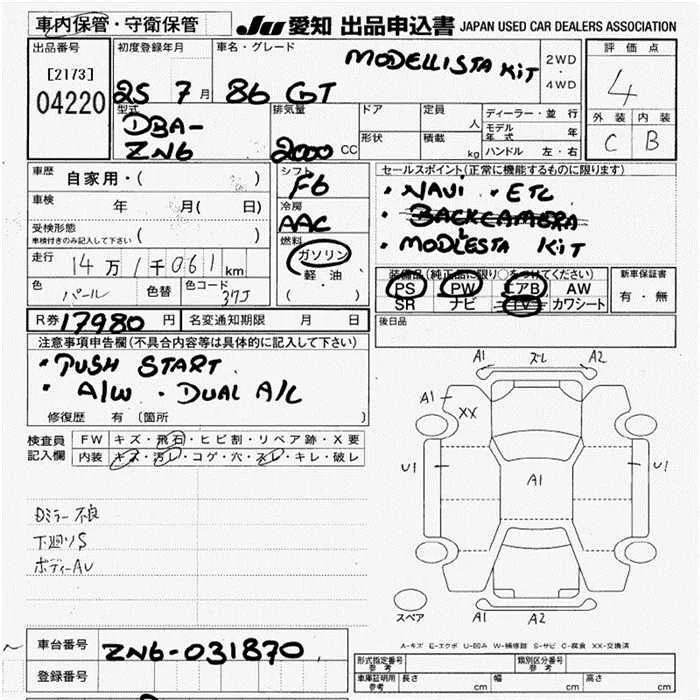 車内保管・守衛保管
JU 愛知 出品申込書 JAPAN USED CAR DEALERS ASSOCIATION
出品番号
[2173]
04220
初度登録年月
25 7月
車名・グレード
86 GT
MODELLISTA KiT
2WD
・
4WD
評価点
4
外装 内装
C B
型式
DBA-
ZN6
排気量
2000 CC
ドア
形状
定員
人
積載
kg
ディーラー・並行
モデル年式 年
ハンドル 左・右
車歴
自家用・( )
車検
年 月( 日)
受検形態
車検付きのみ記入して下さい ( )
走行
14万1千061km
色
パール
色替
色コード
37J
シフト
F6
冷房
AAC
燃料
ガソリン
軽・油
( )
セールスポイント(正常に機能するものに限ります)
・NAVi ・ETC
・BACKCAMERA
・MODLESTA KiT
装備品(純正品に限り○をつけてください)
PS PW エアB AW
SR ナビ TV カワシート
新車保証書
有・無
R券 17980 円
名変通知期限 月 日
後日品
注意事項申告欄(不具合内容等は具体的に記入して下さい)
・PUSH START.
・A/W ・DUAL A/C
修復歴 有〔箇所
検査員
記入欄
FW キズ・飛石・ヒビ割・リペア跡・X要
内装 キズ・汚レ・コゲ・穴・スレ・キレ・破レ
Dミラー不良
下廻りS
ボディーAU
A1 スレ A2
A1
XX
U1 A1 U1
スペア
A1 A2
A-キズ E-エクボ U-凹み W-補修跡 S-サビ C-腐食 XX-交換済
車台番号
ZN6-031870
登録番号
形式指定番号
参考
類別区分番号
参考
車庫証明用
参考
長さ cm
幅 cm
高さ cm